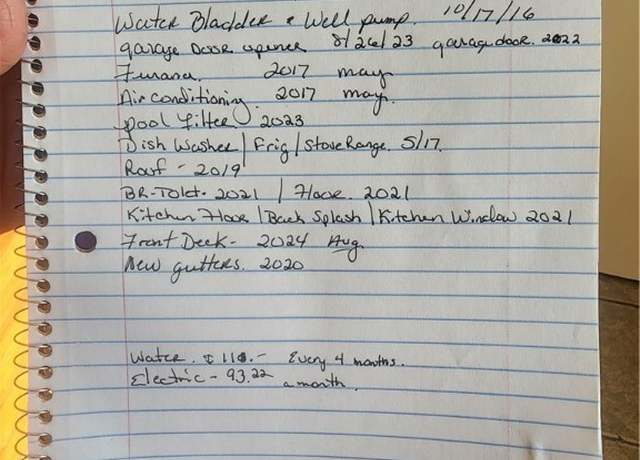 Water Bladder & Well pump. 10/17/16
garage Door opener 8/26/23 garage door. 2022
Furnace. 2017 may
Air conditioning. 2017 may.
pool filter 2023
Dish Washer | Frig | Stove Range. 5/17.
Roof - 2019
BR-Toilet. 2021 | Floor. 2021
Kitchen Floor | Back Splash | Kitchen Window 2021
Front Deck - 2024 Aug.
New gutters. 2020
Water. $ 110.- Every 4 months.
Electric - 93.22 a month.